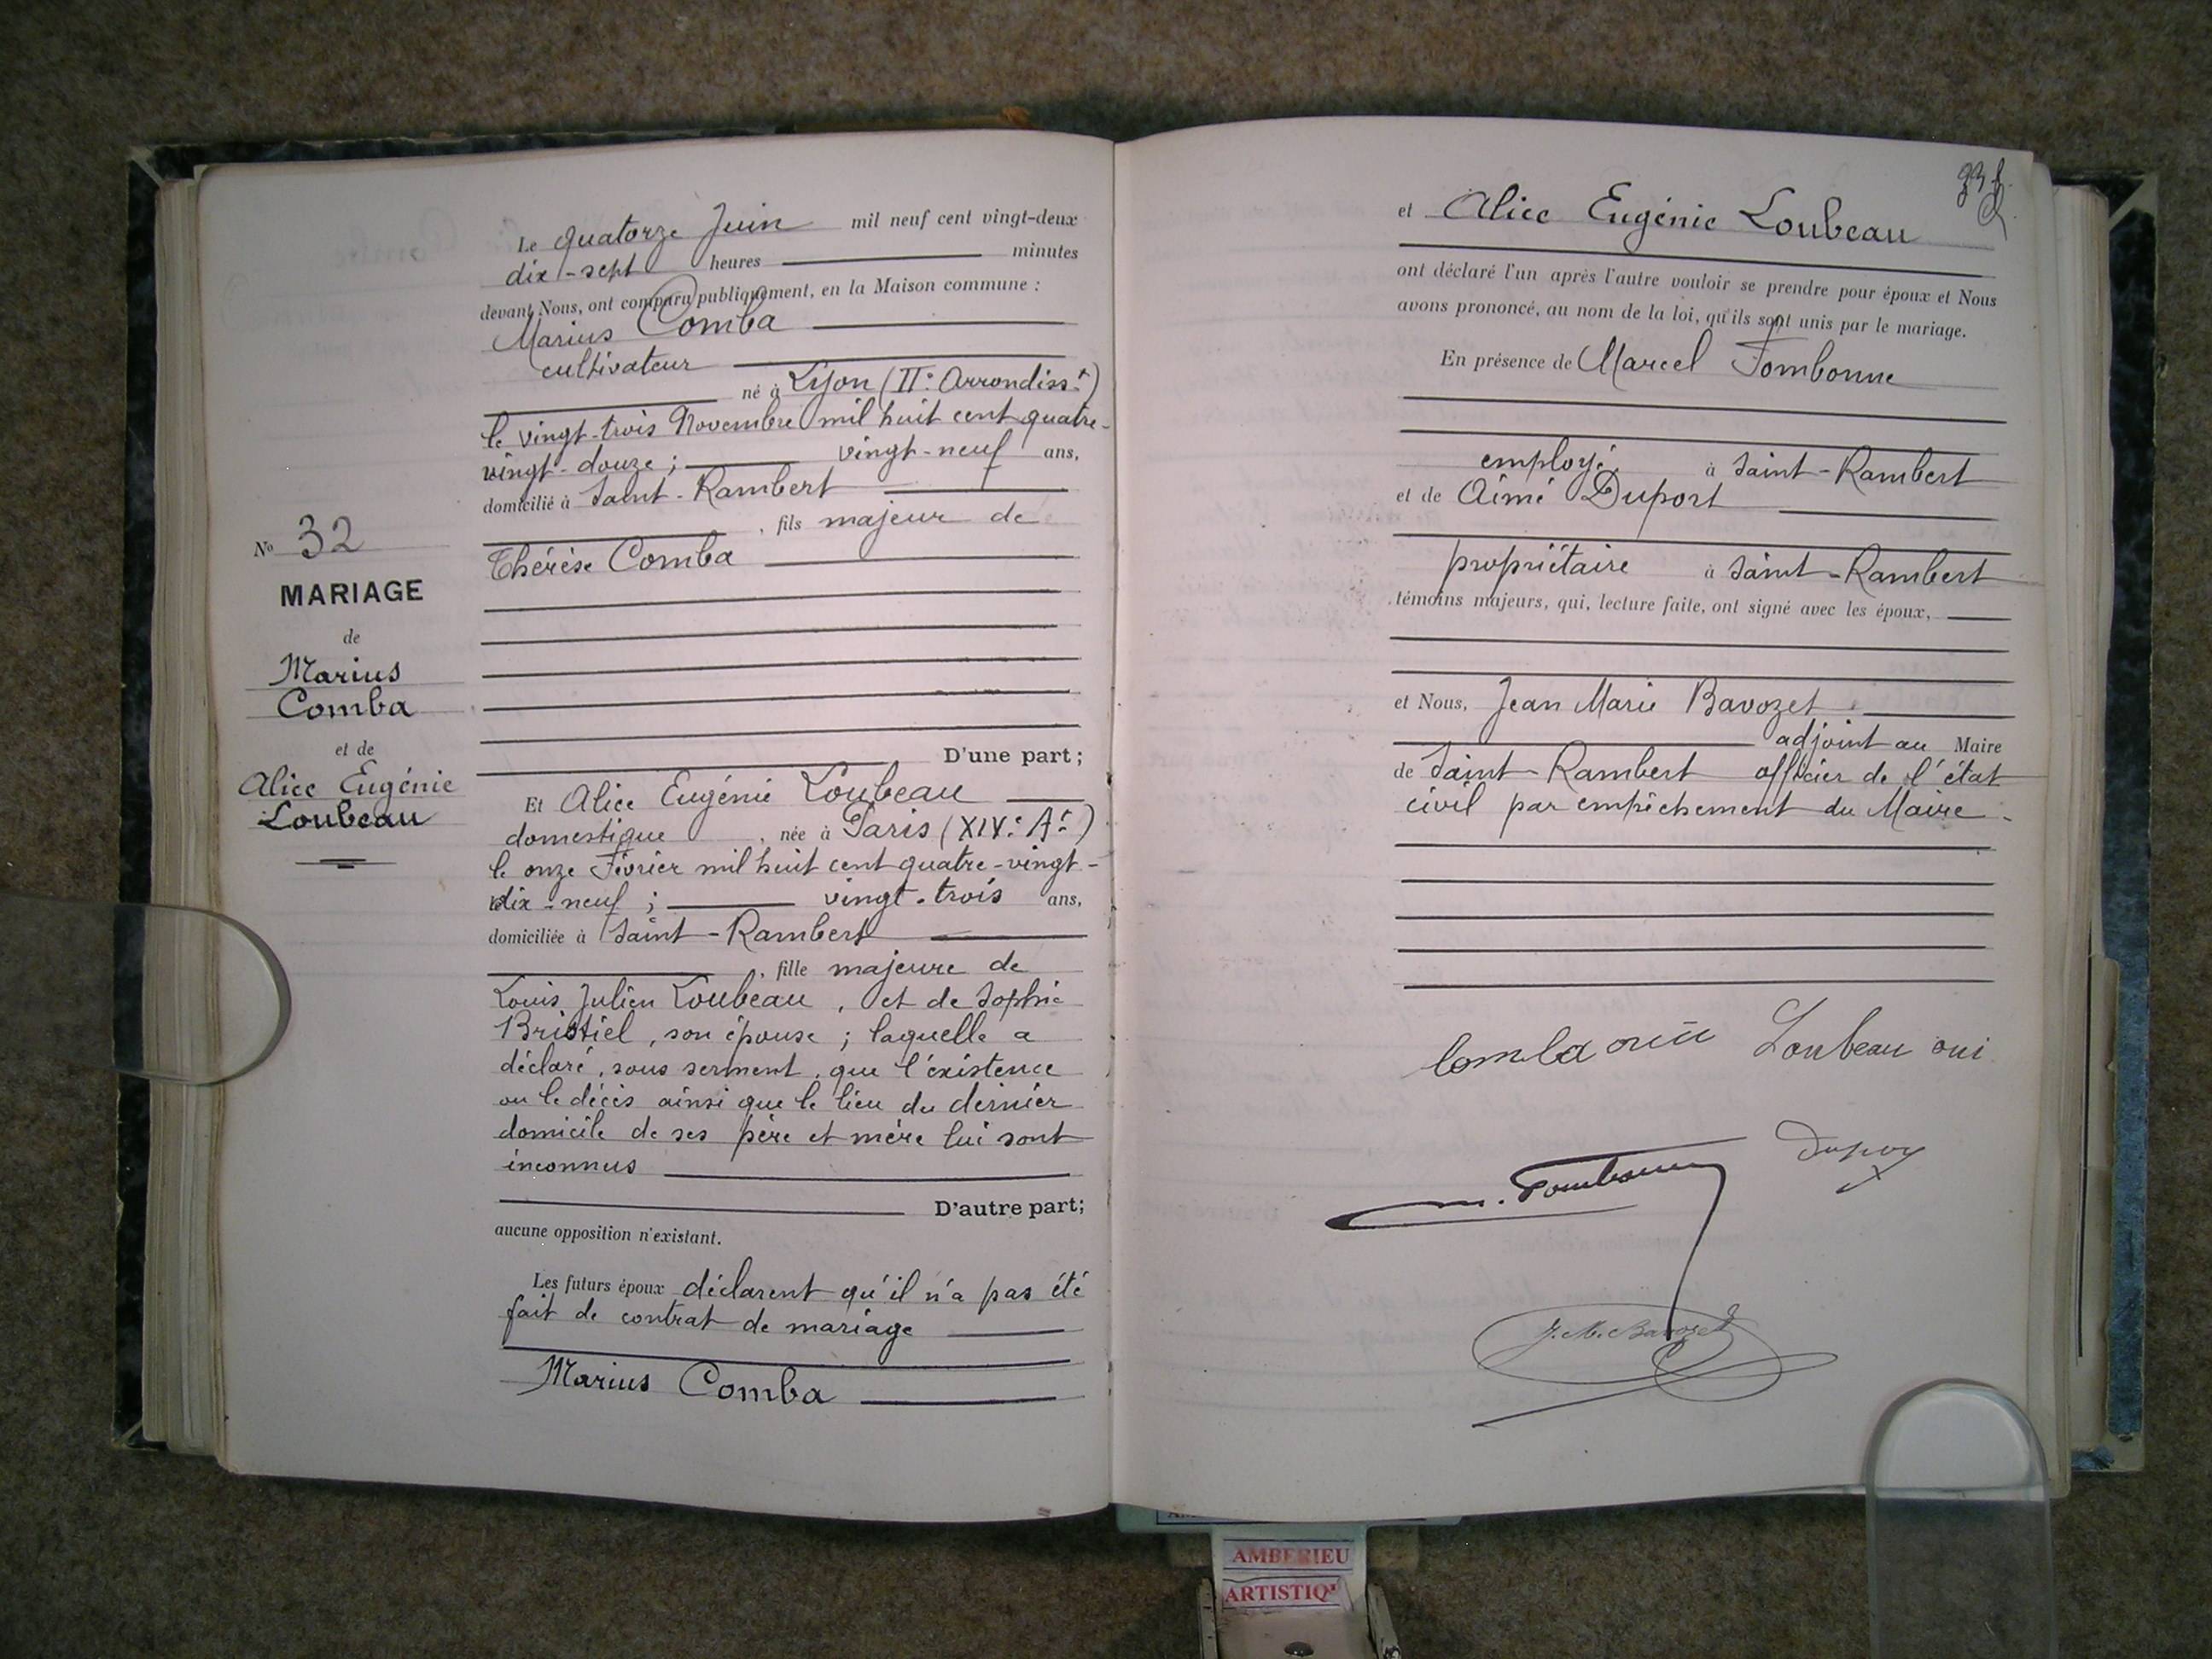 No 32
MARIAGE
de
Marius
Comba
et de
Alice Eugénie
Loubeau
Le quatorze Juin mil neuf cent vingt-deux
dix-sept heures minutes
devant Nous, ont comparu publiquement, en la Maison commune :
Marius Comba
cultivateur
né à Lyon (IIe Arrondisst)
le vingt-trois Novembre mil huit cent quatre-
vingt-douze ; vingt-neuf ans,
domicilié à Saint-Rambert
, fils majeur de
Thérèse Comba
D'une part ;
Et Alice Eugénie Loubeau
domestique , née à Paris (XIVe Ar)
le onze Février mil huit cent quatre-vingt-
dix-neuf ; vingt-trois ans,
domiciliée à Saint-Rambert
, fille majeure de
Louis Julien Loubeau, et de Sophie
Bristiel, son épouse ; laquelle a
déclaré, sous serment, que l'existence
ou le décès ainsi que le lieu du dernier
domicile de ses père et mère lui sont
inconnus
D'autre part;
aucune opposition n'existant.
Les futurs époux déclarent qu'il n'a pas été
fait de contrat de mariage
Marius Comba
et Alice Eugénie Loubeau
ont déclaré l'un après l'autre vouloir se prendre pour époux et Nous
avons prononcé, au nom de la loi, qu'ils sont unis par le mariage.
En présence de Marcel Fombonne
employé à Saint-Rambert
et de Aimé Duport
propriétaire à Saint-Rambert
témoins majeurs, qui, lecture faite, ont signé avec les époux,
et Nous, Jean Marie Bavozet
adjoint au Maire
de Saint-Rambert officier de l'état
civil par empêchement du Maire.
Comba Loubeau
M. Fombonne
J. M. Bavozet
AMBERIEU
ARTISTIQ